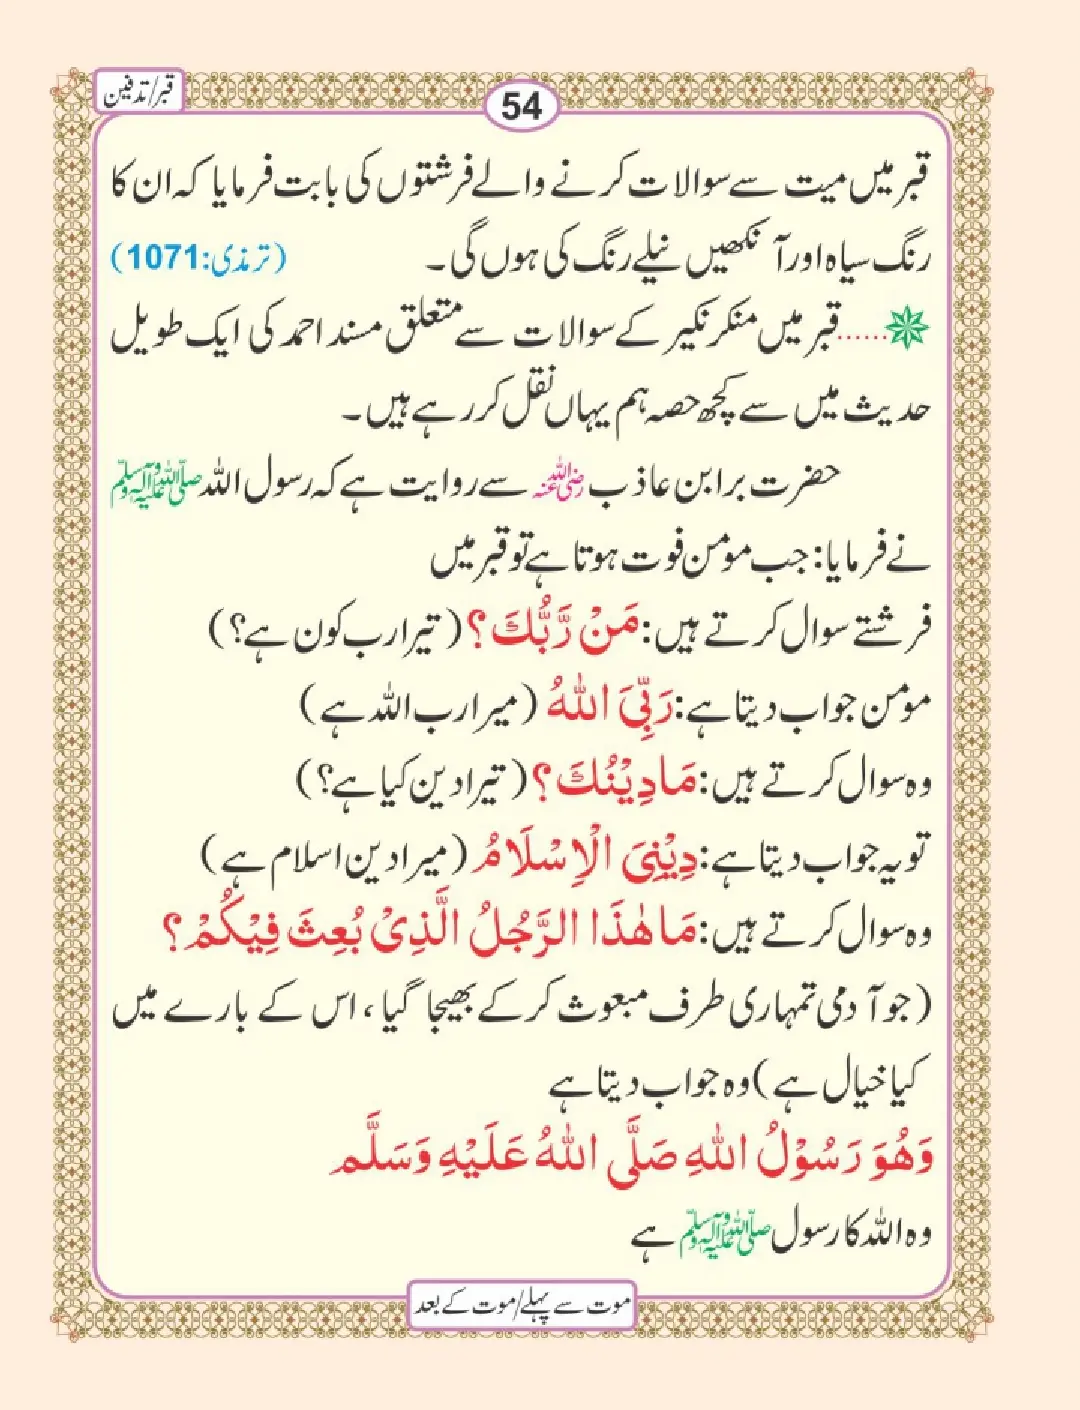 قبر/تدفین
54
قبر میں میت سے سوالات کرنے والے فرشتوں کی بابت فرمایا کہ ان کا
رنگ سیاہ اور آنکھیں نیلے رنگ کی ہوں گی۔ (ترمذی:1071)
......قبر میں منکر نکیر کے سوالات سے متعلق مسند احمد کی ایک طویل
حدیث میں سے کچھ حصہ ہم یہاں نقل کر رہے ہیں۔
حضرت برا ابن عاذب رضی اللہ عنہ سے روایت ہے کہ رسول اللہ صلی اللہ علیہ وآلہ وسلم
نے فرمایا: جب مومن فوت ہوتا ہے تو قبر میں
فرشتے سوال کرتے ہیں: مَنْ رَّبُّكَ؟ (تیرا رب کون ہے؟)
مومن جواب دیتا ہے: رَبِّیَ اللهُ (میرا رب اللہ ہے)
وہ سوال کرتے ہیں: مَا دِیْنُكَ؟ (تیرا دین کیا ہے؟)
تو یہ جواب دیتا ہے: دِیْنِیَ الْاِسْلَامُ (میرا دین اسلام ہے)
وہ سوال کرتے ہیں: مَا هٰذَا الرَّجُلُ الَّذِیْ بُعِثَ فِیْكُمْ؟
(جو آدمی تمہاری طرف مبعوث کر کے بھیجا گیا، اس کے بارے میں
کیا خیال ہے) وہ جواب دیتا ہے
وَهُوَ رَسُوْلُ اللهِ صَلَّی اللهُ عَلَیْهِ وَسَلَّم
وہ اللہ کا رسول صلی اللہ علیہ وآلہ وسلم ہے
موت سے پہلے/موت کے بعد